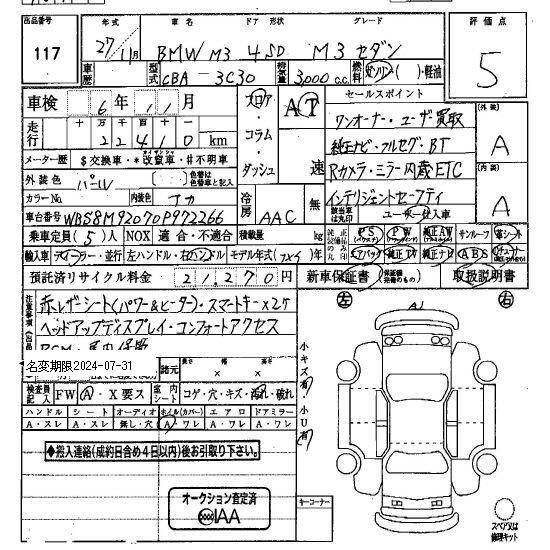 出品番号 年式 車名 ドア 形状 グレード 評価点
117 27年11月 BMW M3 4SD M3セダン 5
車歴 型式 CBA-3C30 排気量 3,000 C.C. 燃料 ガソリン・( )・軽油
車検 6年11月 フロア・コラム・ダッシュ AT セールスポイント 外装 A
走行 十 万 千 百 十 一
2 2 4 1 0 km
ワンオーナー・ユーザー買取
純正ナビ・フルセグ・BT
メーター歴 $交換車・*改竄車・#不明車 速 Rカメラ・ミラー内蔵ETC 内装 A
外装色 パール 色替は色替車と記入 インテリジェントセーフティ
カラーNo. 内装色 アカ 冷房 AAC 無 該当車は丸印 ユーザー仕入車
車台番号 WBS8M92070P972266
乗車定員(5)人 NOX 適合・不適合 積載量 kg 純正品のみ丸印 PS PW 純正AW サンルーフ 革シート
輸入車 ディーラー・並行 左ハンドル・右ハンドル モデル年式( )年 エアバッグ 純正TV 純正ナビ ABS
預託済リサイクル料金 21,270円 新車保証書 取扱説明書
注意事項 赤レザーシート(パワー&ヒーター)・スマートキー×2ケ 左 右
ヘッドアップディスプレイ・コンフォートアクセス A1
名変期限2024-07-31 諸元 長さ 幅 高さ × ×
検査員記入 FW A・X要ス 室内シート コゲ・穴・キズ・汚れ・破れ 小キズ有 小U有
ハンドル シート オーディオ ホイル(カバー) エアロ ドアミラー
A・スレ A・スレ 無し・穴 A・ワレ A・ワレ A・ワレ
◆搬入連絡(成約日含め4日以内)後お引取り下さい。◆
オークション査定済
IAA
キーコーナー
スペア又は修理キット